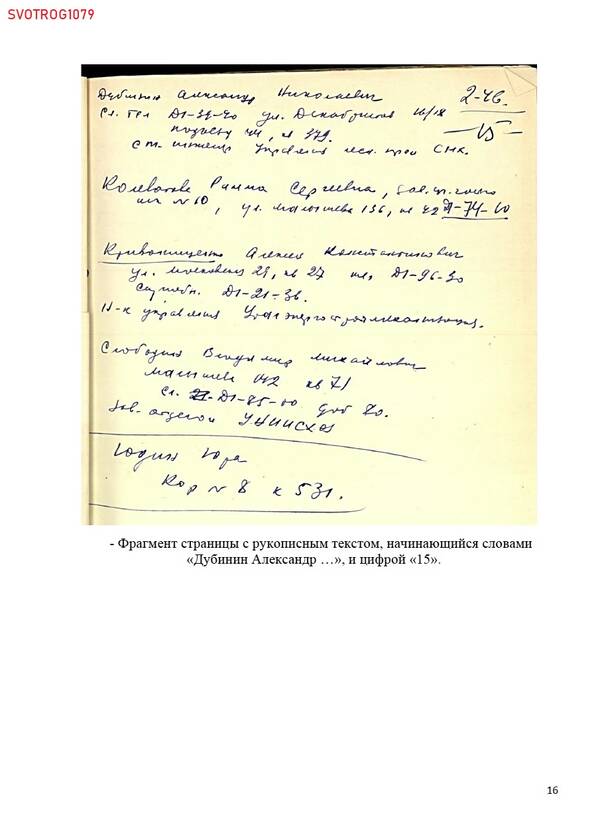 SVOTROG1079
Дубинин Александр Николаевич 2-46.
Сл. тел Д1-34-40 ул. Декабристов 16/18
подъезд, кв 379. 15
Ст. инженер Управления лесн. пром СНХ.
Колеватова Римма Сергеевна,
шк № 10, ул. Малышева 136, кв 42 Д1-74-10
Кривонищенко Алексей Константинович
ул. Московская 29, кв 27 тел. Д1-96-30
Служебн. Д1-21-36.
Н-к управления Уралэнергостроймеханизация.
Слободин Владимир Михайлович
Малышева 142 кв 71
Сл. Д1-85-00 доб 20.
Зав. отделом
Юдин Юра
Кор № 8 к 531.
- Фрагмент страницы с рукописным текстом, начинающийся словами
«Дубинин Александр …», и цифрой «15».
16